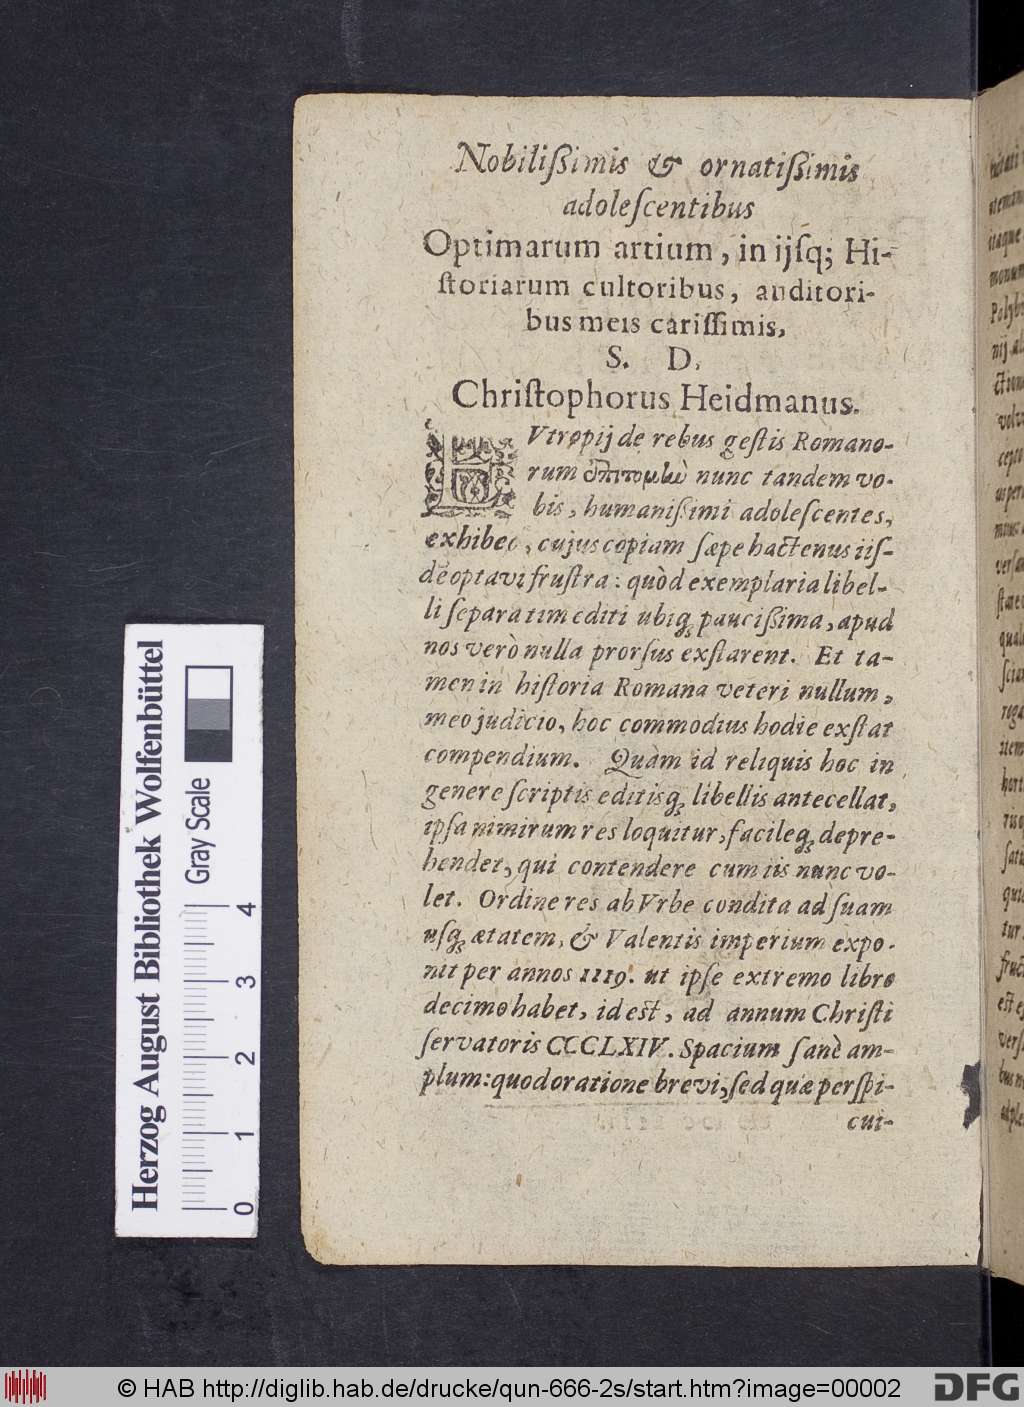 Nobilißimis & ornatißimis
adoleſcentibus
Optimarum artium, in ijſq; Hi-
ſtoriarum cultoribus, auditori-
bus meis cariſſimis,
S. D.
Chriſtophorus Heidmanus.
EVtropij de rebus geſtis Romano-
rum ἐπιτομὴν nunc tandem vo-
bis, humanißimi adoleſcentes,
exhibeo, cujus copiam ſæpe hactenus iiſ-
dē optavi fruſtra: quòd exemplaria libel-
li ſeparatim editi ubiq; paucißima, apud
nos verò nulla prorſus exſtarent. Et ta-
men in hiſtoria Romana veteri nullum,
meo judicio, hoc commodius hodie exſtat
compendium. Quàm id reliquis hoc in
genere ſcriptis editisq; libellis antecellat,
ipſa nimirum res loquitur, facileq; depre-
hendet, qui contendere cum iis nunc vo-
let. Ordine res ab Vrbe condita ad ſuam
uſq; ætatem, & Valentis imperium expo-
nit per annos 1119. ut ipſe extremo libro
decimo habet, id eſt, ad annum Chriſti
ſervatoris CCCLXIV. Spacium ſanè am-
plum: quod oratione brevi, ſed quæ perſpi-
cui-
Herzog August Bibliothek Wolfenbüttel
Gray Scale
0 1 2 3 4
© HAB http://diglib.hab.de/drucke/qun-666-2s/start.htm?image=00002
DFG